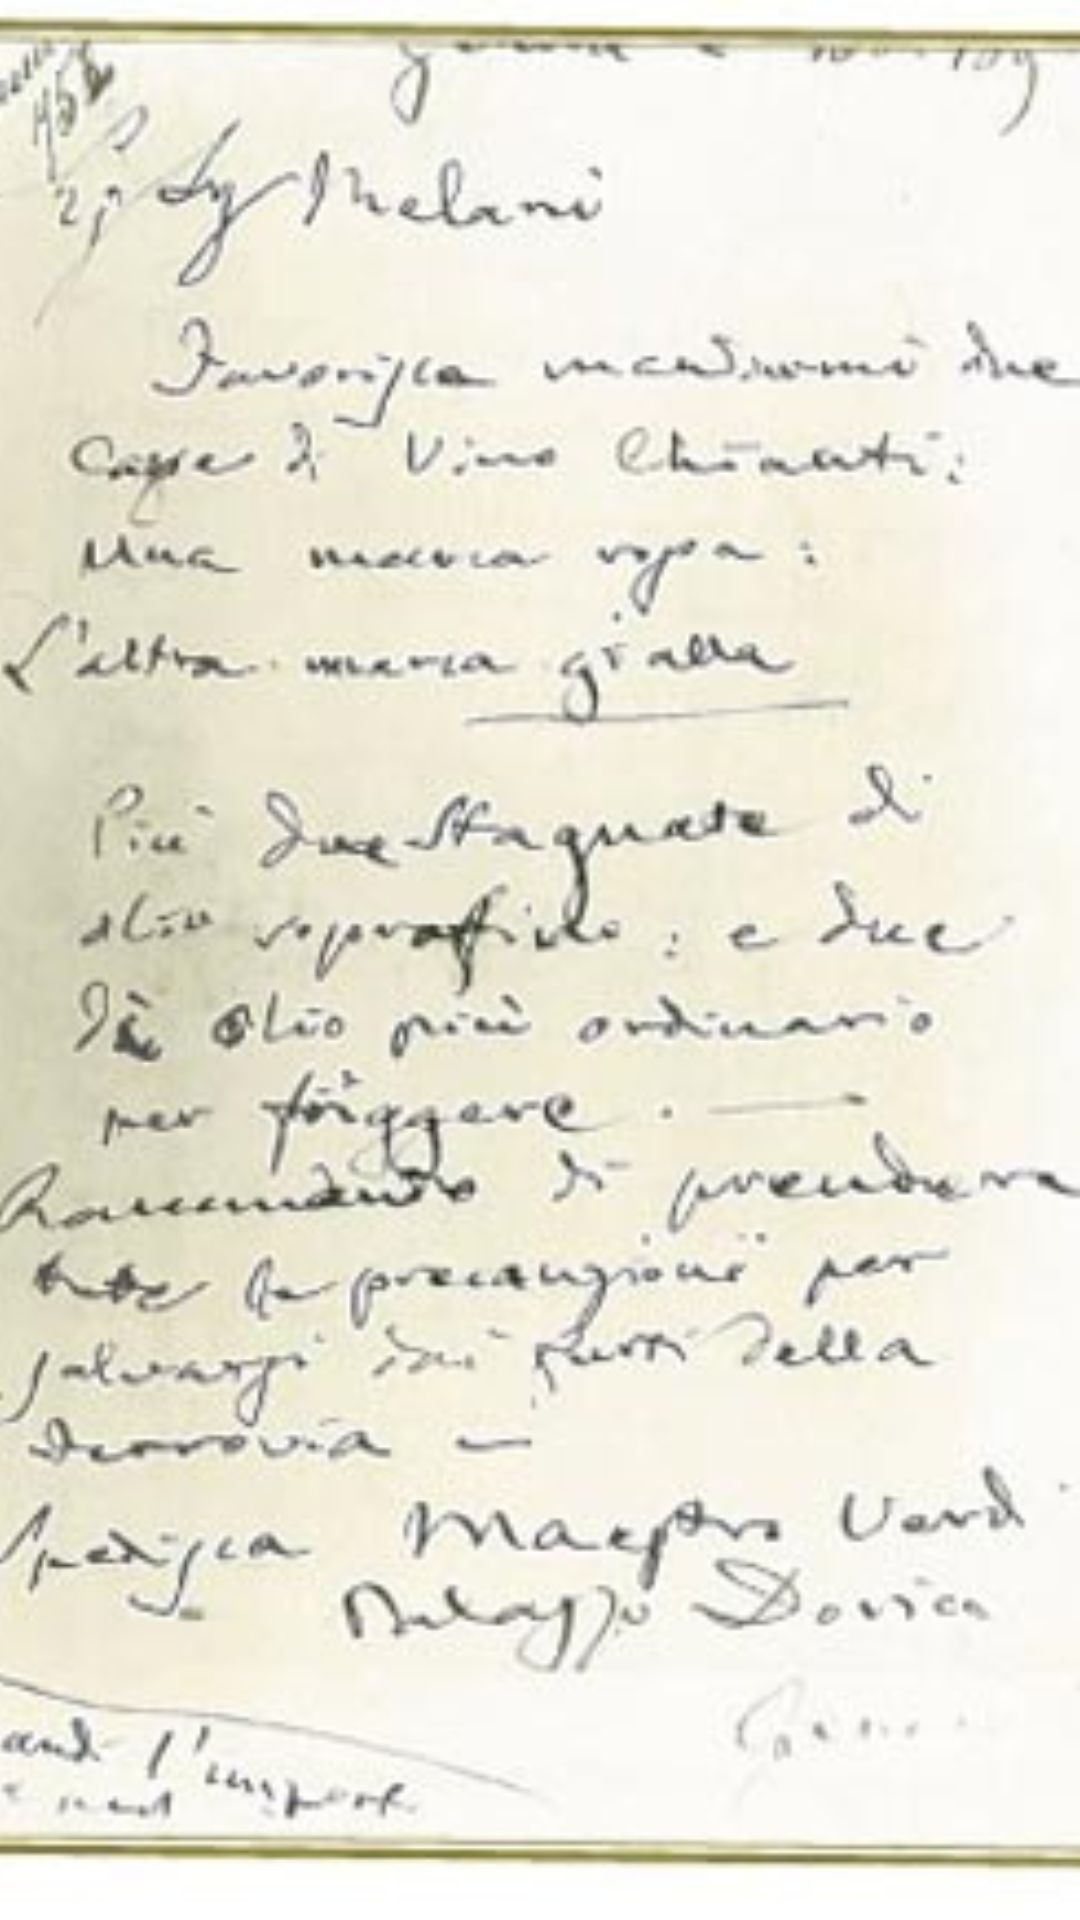 Sig Melani
Favorisca mandarmi due
Casse di Vino Chianti:
Una marca rossa:
L'altra marca gialla
Più due Stagnate di
olio soprafino: e due
di olio più ordinario
per friggere. —
Raccomando di prendere
tutte le precauzioni per
salvarsi dai furti della
Ferrovia —
Spedisca Maestro Verdi
Palazzo Doria
Genova
l'importo